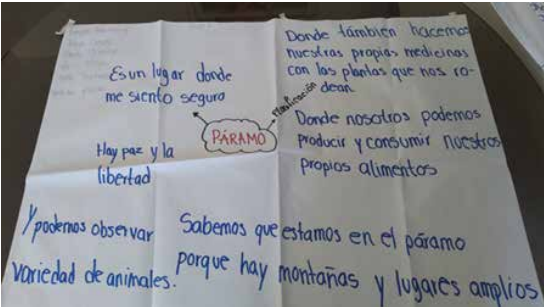 Es un lugar donde
me siento segura
Hay paz y la
libertad
PÁRAMO
Donde támbien hacemos
nuestras propias medicinas
con las plantas que nos ro-
dean
Donde nosotros podemos
producir y consumir nuestros
propios alimentos
Y podemos observar
variedad de animales.
Sabemos que estamos en el páramo
porque hay montañas y lugares amplios